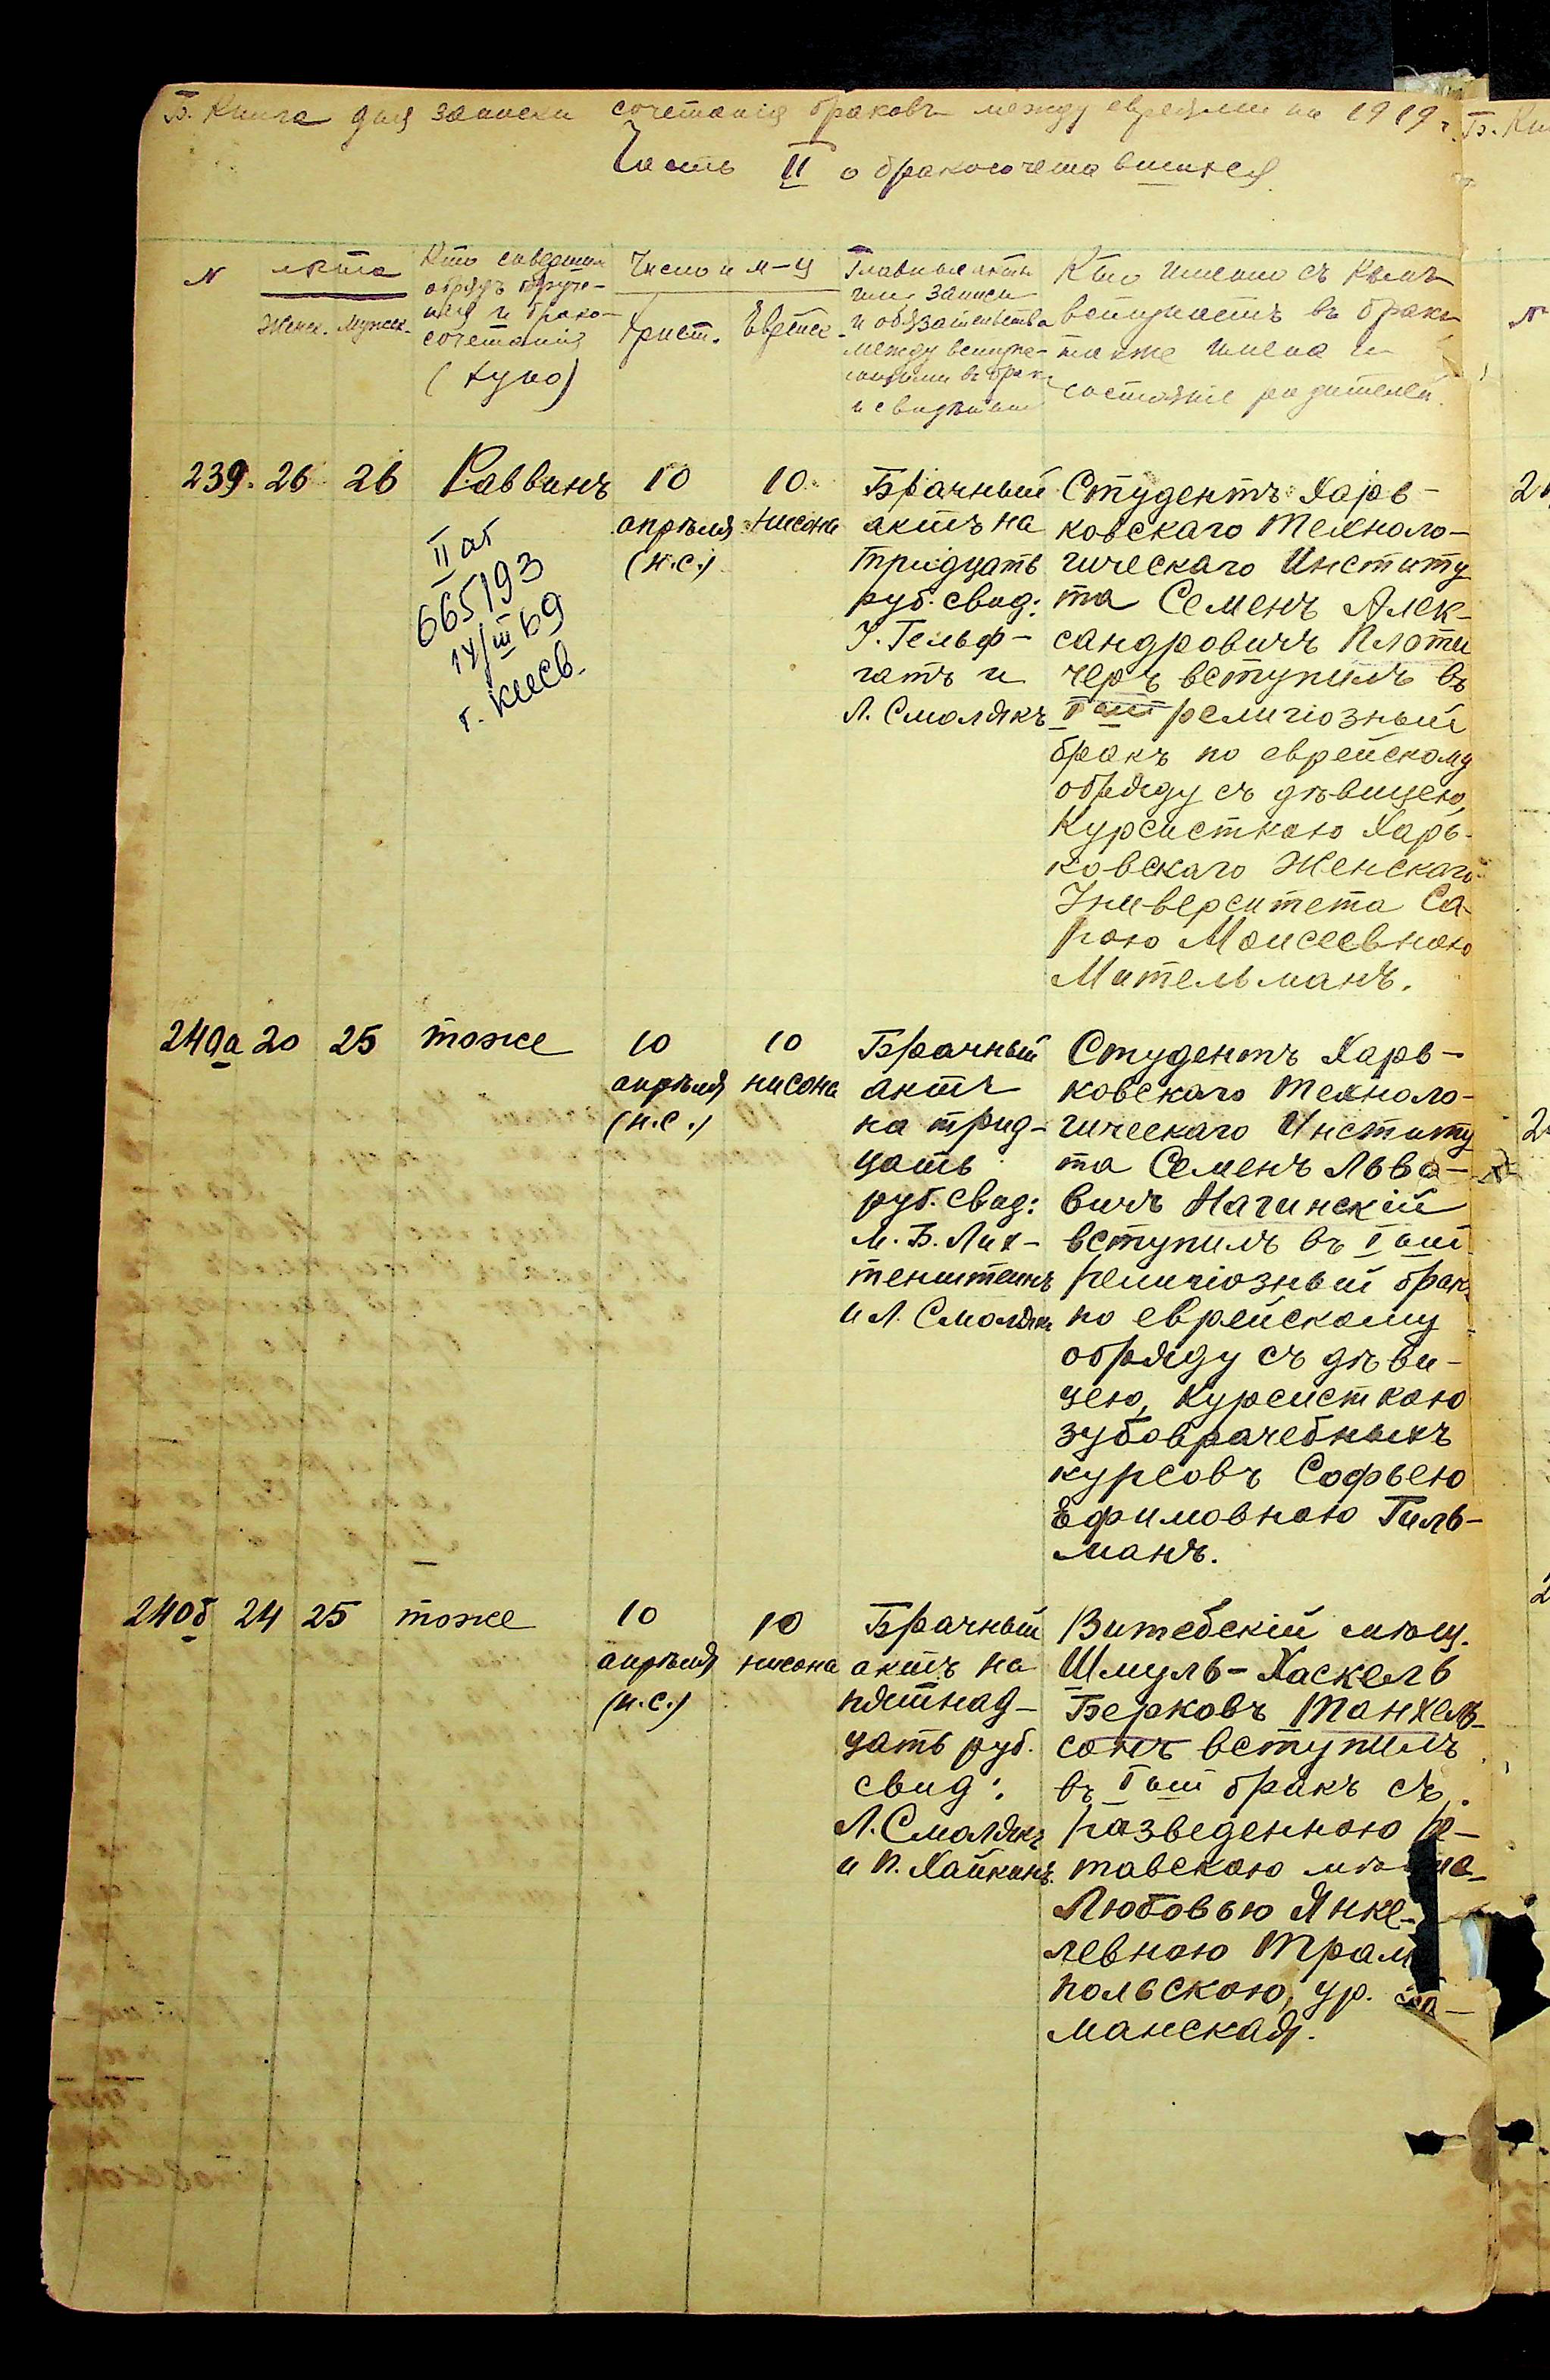 Б. Книга для записи сочетанія браковъ между евреями на 1919 г.
Часть II о бракосочетавшихся
№
лѣта
Женск. Мужск.
Кто совершал
обрядъ обруче-
нія и брако-
сочетанія
(хупо)
Число и м-ц
Христ. Еврейск.
Главные акты
или записи
и обязательства
между вступаю-
щими въ бракъ
и свидѣтели
Кто именно съ кѣмъ
вступаетъ въ бракъ
также имена и
состояніе родителей.
239. 26 26 Раввинъ
II аб
665193
14/III 69
г. Киев.
10
апрѣля
(н.с.)
10
нисона
Брачный
актъ на
тридцать
руб. свид:
У. Гельф-
гатъ и
Л. Смолякъ
Студентъ Харь-
ковскаго Техноло-
гическаго Институ
та Семенъ Алек-
сандровичъ Плоти
черъ вступилъ въ
I ый религіозный
бракъ по еврейскому
обряду съ дѣвицею,
Курсисткою Харь-
ковскаго Женскаго
Университета Са-
рою Моисеевною
Мительманъ.
240а 20 25 тоже
10
апрѣля
(н.с.)
10
нисона
Брачный
актъ
на трид-
цать
руб. свид:
М. Б. Лих-
тенштейнъ
и Л. Смолякъ
Студентъ Харь-
ковскаго Техноло-
гическаго Институ
та Семенъ Льво-
вичъ Нагинскій
вступилъ въ I ый
религіозный бракъ
по еврейскому
обряду съ дѣви-
цею, Курсисткою
зубоврачебныхъ
курсовъ Софьею
Ефимовною Гиль-
манъ.
240б 24 25 тоже
10
апрѣля
(н.с.)
10
нисона
Брачный
актъ на
пятнад-
цать руб.
свид:
Л. Смолякъ
и П. Хайкинъ.
Витебскій мѣщ.
Шмуль-Хаскель
Берковъ Танхель-
сонъ вступилъ
въ I ый бракъ съ
разведенною
тавскою
Любовью Янке-
левною Трам
польскою, ур.
манская.